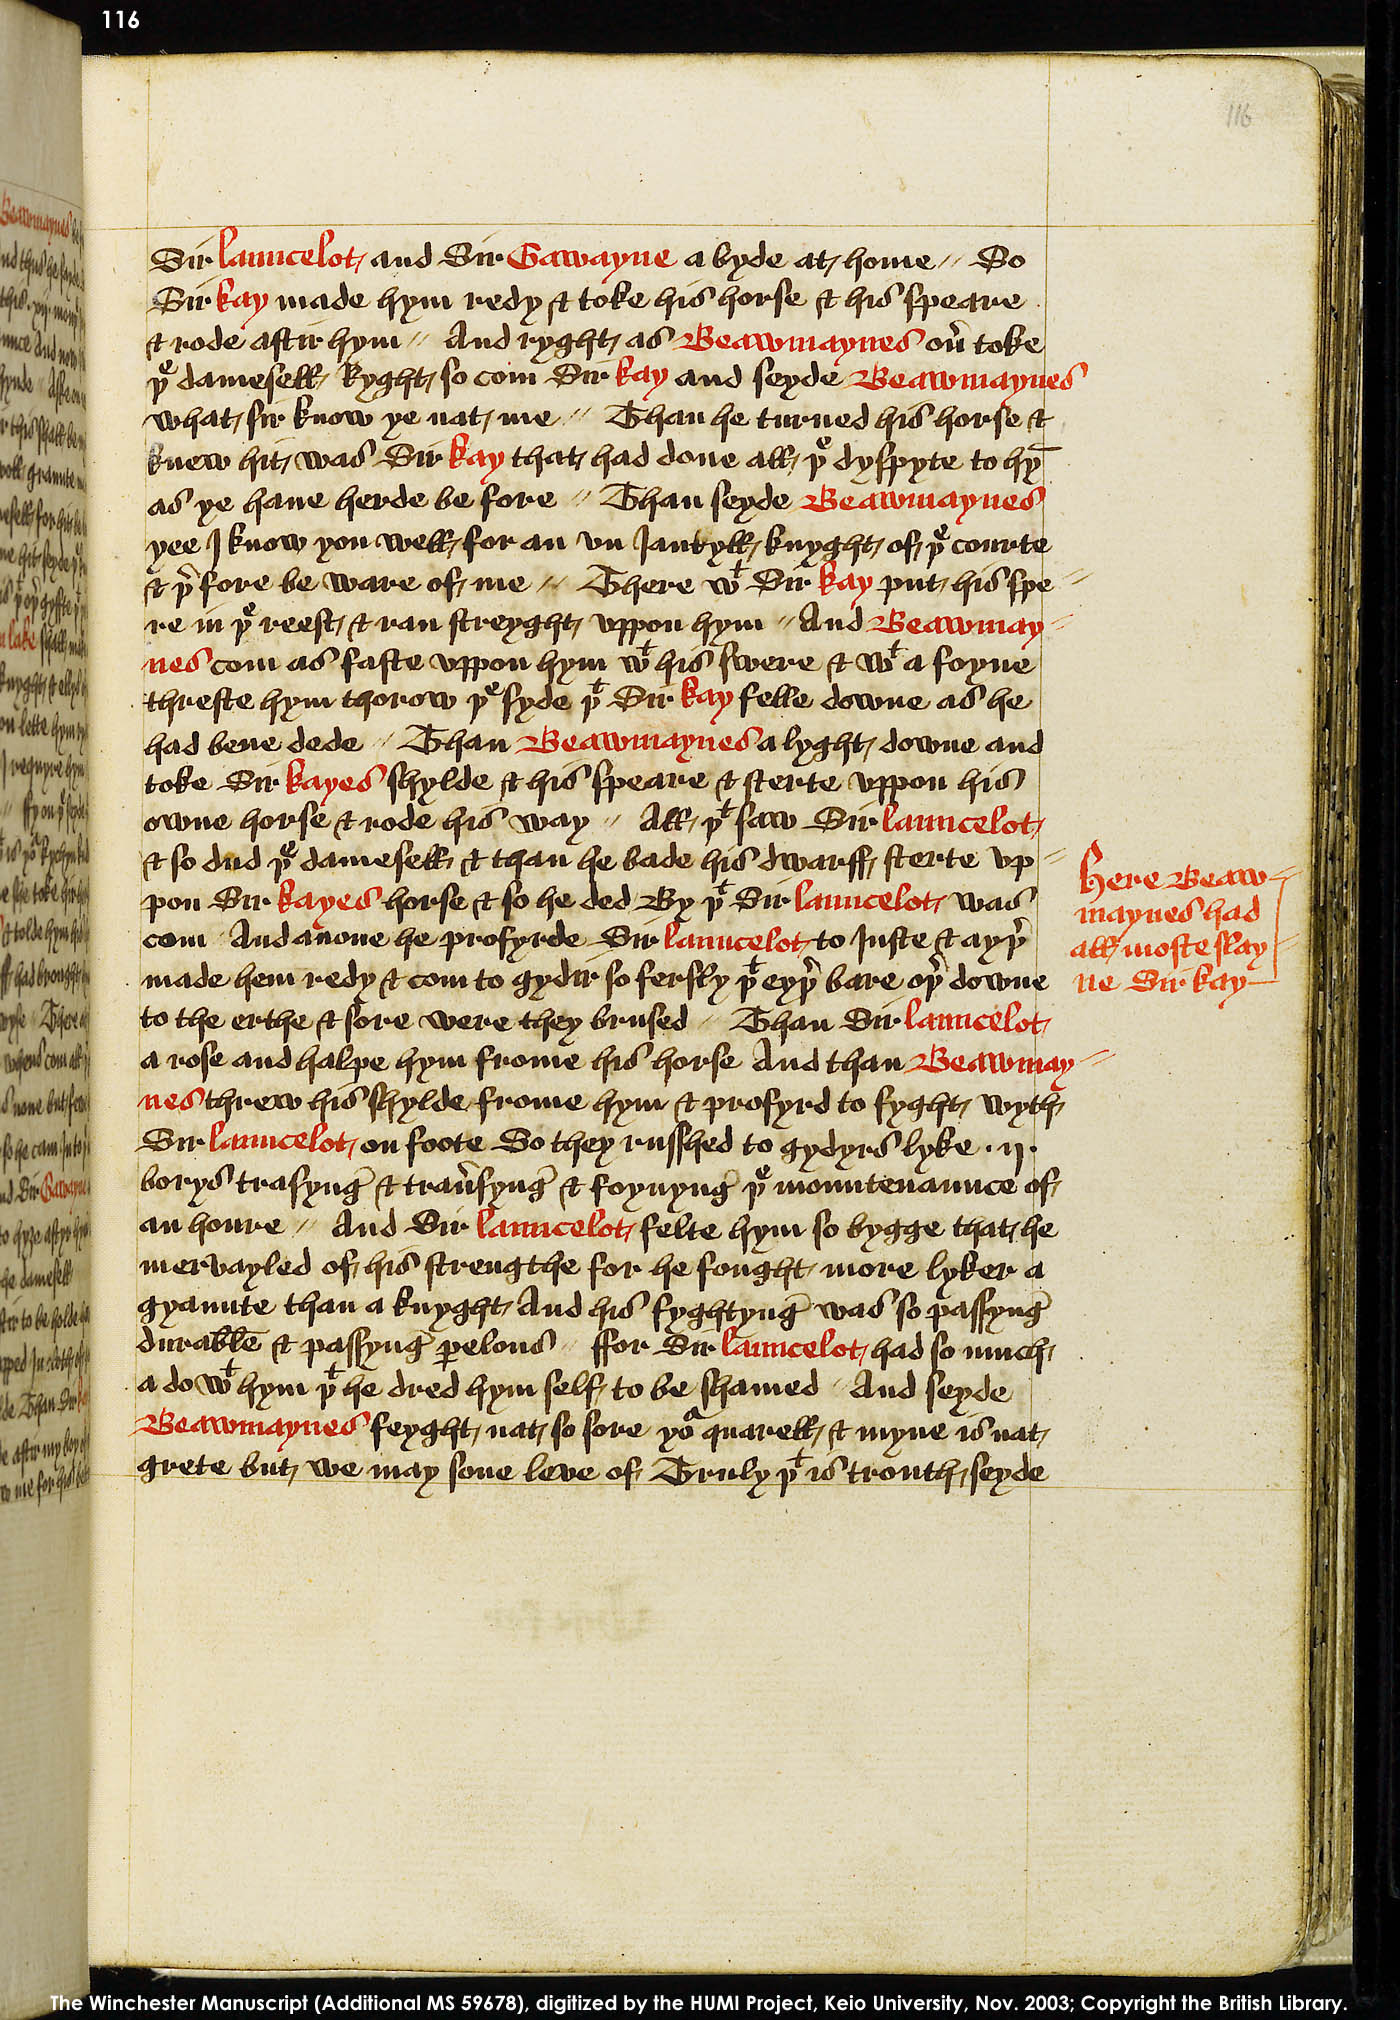 116
116
Sir Launcelot and Sir Gawayne a byde at home // So
Sir kay made hym redy & toke his horse & his speare
& rode aftir hym // And ryght as Beawmaynes ouͬ toke
þͤ damesell Ryght so com Sir kay and seyde Beawmaynes
what sir know ye nat me // Than he turned his horse &
knew hit was Sir kay that had done all þͤ dyspyte to hȳ
as ye haue herde be fore // Than seyde Beawmaynes
yee I know you well for an vn Jantyll knyght of þͤ courte
& þͬ fore be ware of me // There wͭ Sir kay put his spe
re in þͤ reest & ran streyght vppon hym // And Beawmay
nes com as faste vppon hym wͭ his swere & wͭ a foyne
threste hym thorow þͤ syde þͭ Sir kay felle downe as he
had bene dede // Than Beawmaynes a lyght downe and
toke Sir kayes shylde & his speare & sterte vppon his
owne horse & rode his way // All þͭ saw Sir Launcelot
& so dud þͤ damesell & than he bade his dwarff sterte vp
pon Sir kayes horse & so he ded By þͭ Sir Launcelot was
com And anone he profyrde Sir Launcelot to Juste & ayþͬ
made hem redy & com to gydir so fersly þͭ eyþͬ bare oþͬ downe
to the erthe & sore were they brused // Than Sir Launcelot
a rose and halpe hym frome his horse And than Beawmay
nes threw his shylde frome hym & profyrd to fyght wyth
Sir Launcelot on foote So they russhed to gydyrs lyke .ij.
borys trasyng & trauͬsyng & foynyng þͤ mountenaunce of
an houre // And Sir Launcelot felte hym so bygge that he
mervayled of his strengthe for he fought more lyker a
gyaunte than a knyght And his fyghtyng was so passyng
durable & passyng ꝑelous // ffor Sir Launcelot had so much
a do wͭ hym þͭ he dred hym self to be shamed // And seyde
Beawmaynes feyght nat so sore yoͬ quarell & myne is nat
grete but we may sone leve of Truly þͭ is trouth seyde
Here Beaw
maynes had
all moste slay
ne Sir kay
The Winchester Manuscript (Additional MS 59678), digitized by the HUMI Project, Keio University, Nov. 2003; Copyright the British Library.